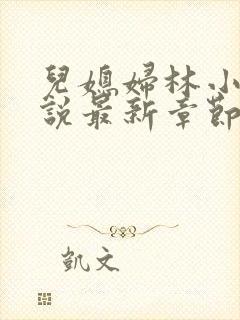 兒媳婦林小
說最新章節
凱文